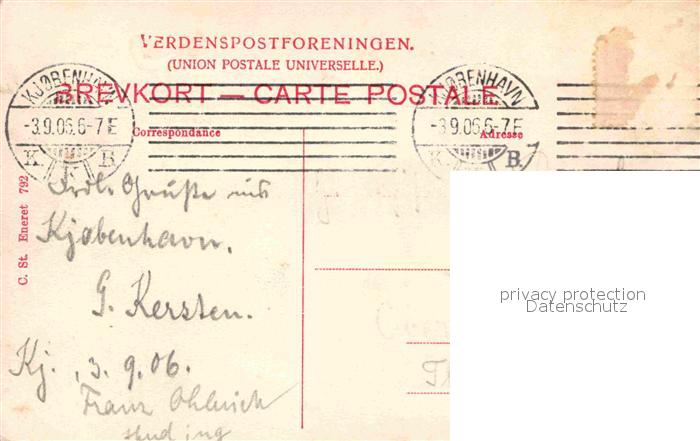 VERDENSPOSTFORENINGEN.
(UNION POSTALE UNIVERSELLE.)
BREVKORT — CARTE POSTALE.
KJØBENHAVN
-3.9.06.6-7E
K B
KJØBENHAVN
-3.9.06.6-7E
K B.
Correspondance
Adresse
C. St. Eneret 792
Grüße aus
Kjøbenhavn.
G. Kersten.
Kj., 3.9.06.
Franz
stud ing
privacy protection
Datenschutz